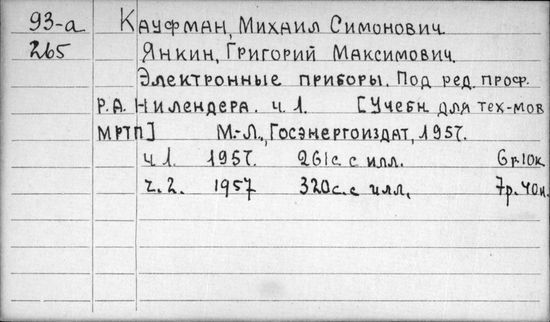 93-а Кауфман, Михаил Симонович.
265 Янкин, Григорий Максимович.
Электронные приборы. Под ред. проф.
Р.А. Нилендера. ч.1. [Учебн. для тех-мов
МРТП] М.-Л., Госэнергоиздат, 1957.
ч.1. 1957. 261с. с илл. 6р.10к.
ч.2. 1957 320с. с илл. 7р.40к.